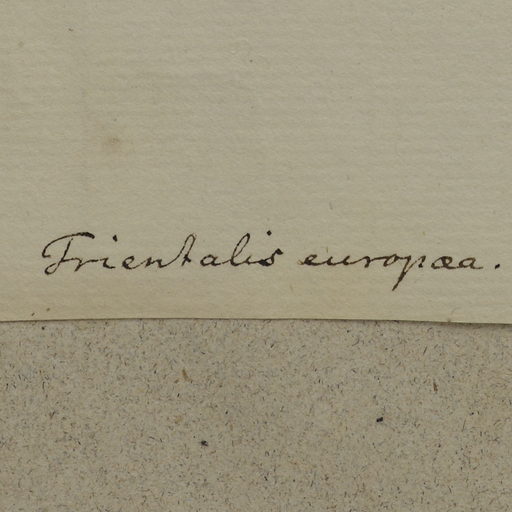 Trientalis europæa.